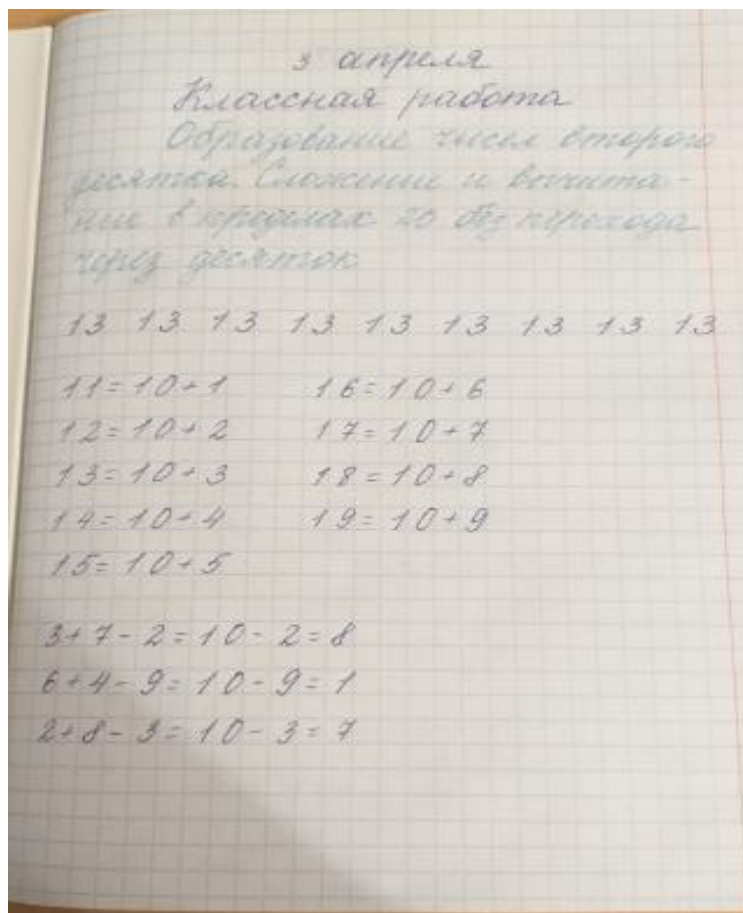 3 апреля
Классная работа
Образование чисел второго
десятка. Сложение и вычита-
ние в пределах 20 без перехода
через десяток
13 13 13 13 13 13 13 13 13
11=10+1 16=10+6
12=10+2 17=10+7
13=10+3 18=10+8
14=10+4 19=10+9
15=10+5
3+7-2=10-2=8
6+4-9=10-9=1
2+8-3=10-3=7